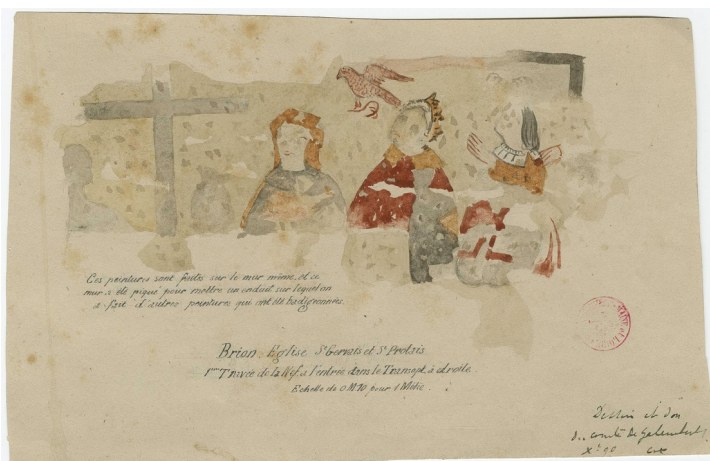 Ces peintures sont faites sur le mur même, et ce
mur a été piqué pour mettre un enduit sur lequel on
a fait d'autres peintures qui ont été badigeonnées.
Brion. Eglise St Gervais et St Protais
1ère Travée de la Nef à l'entrée dans le Transept, à droite.
Echelle de 0m.10 pour 1 Mètre.
Dessin et don
du comte de Galembert